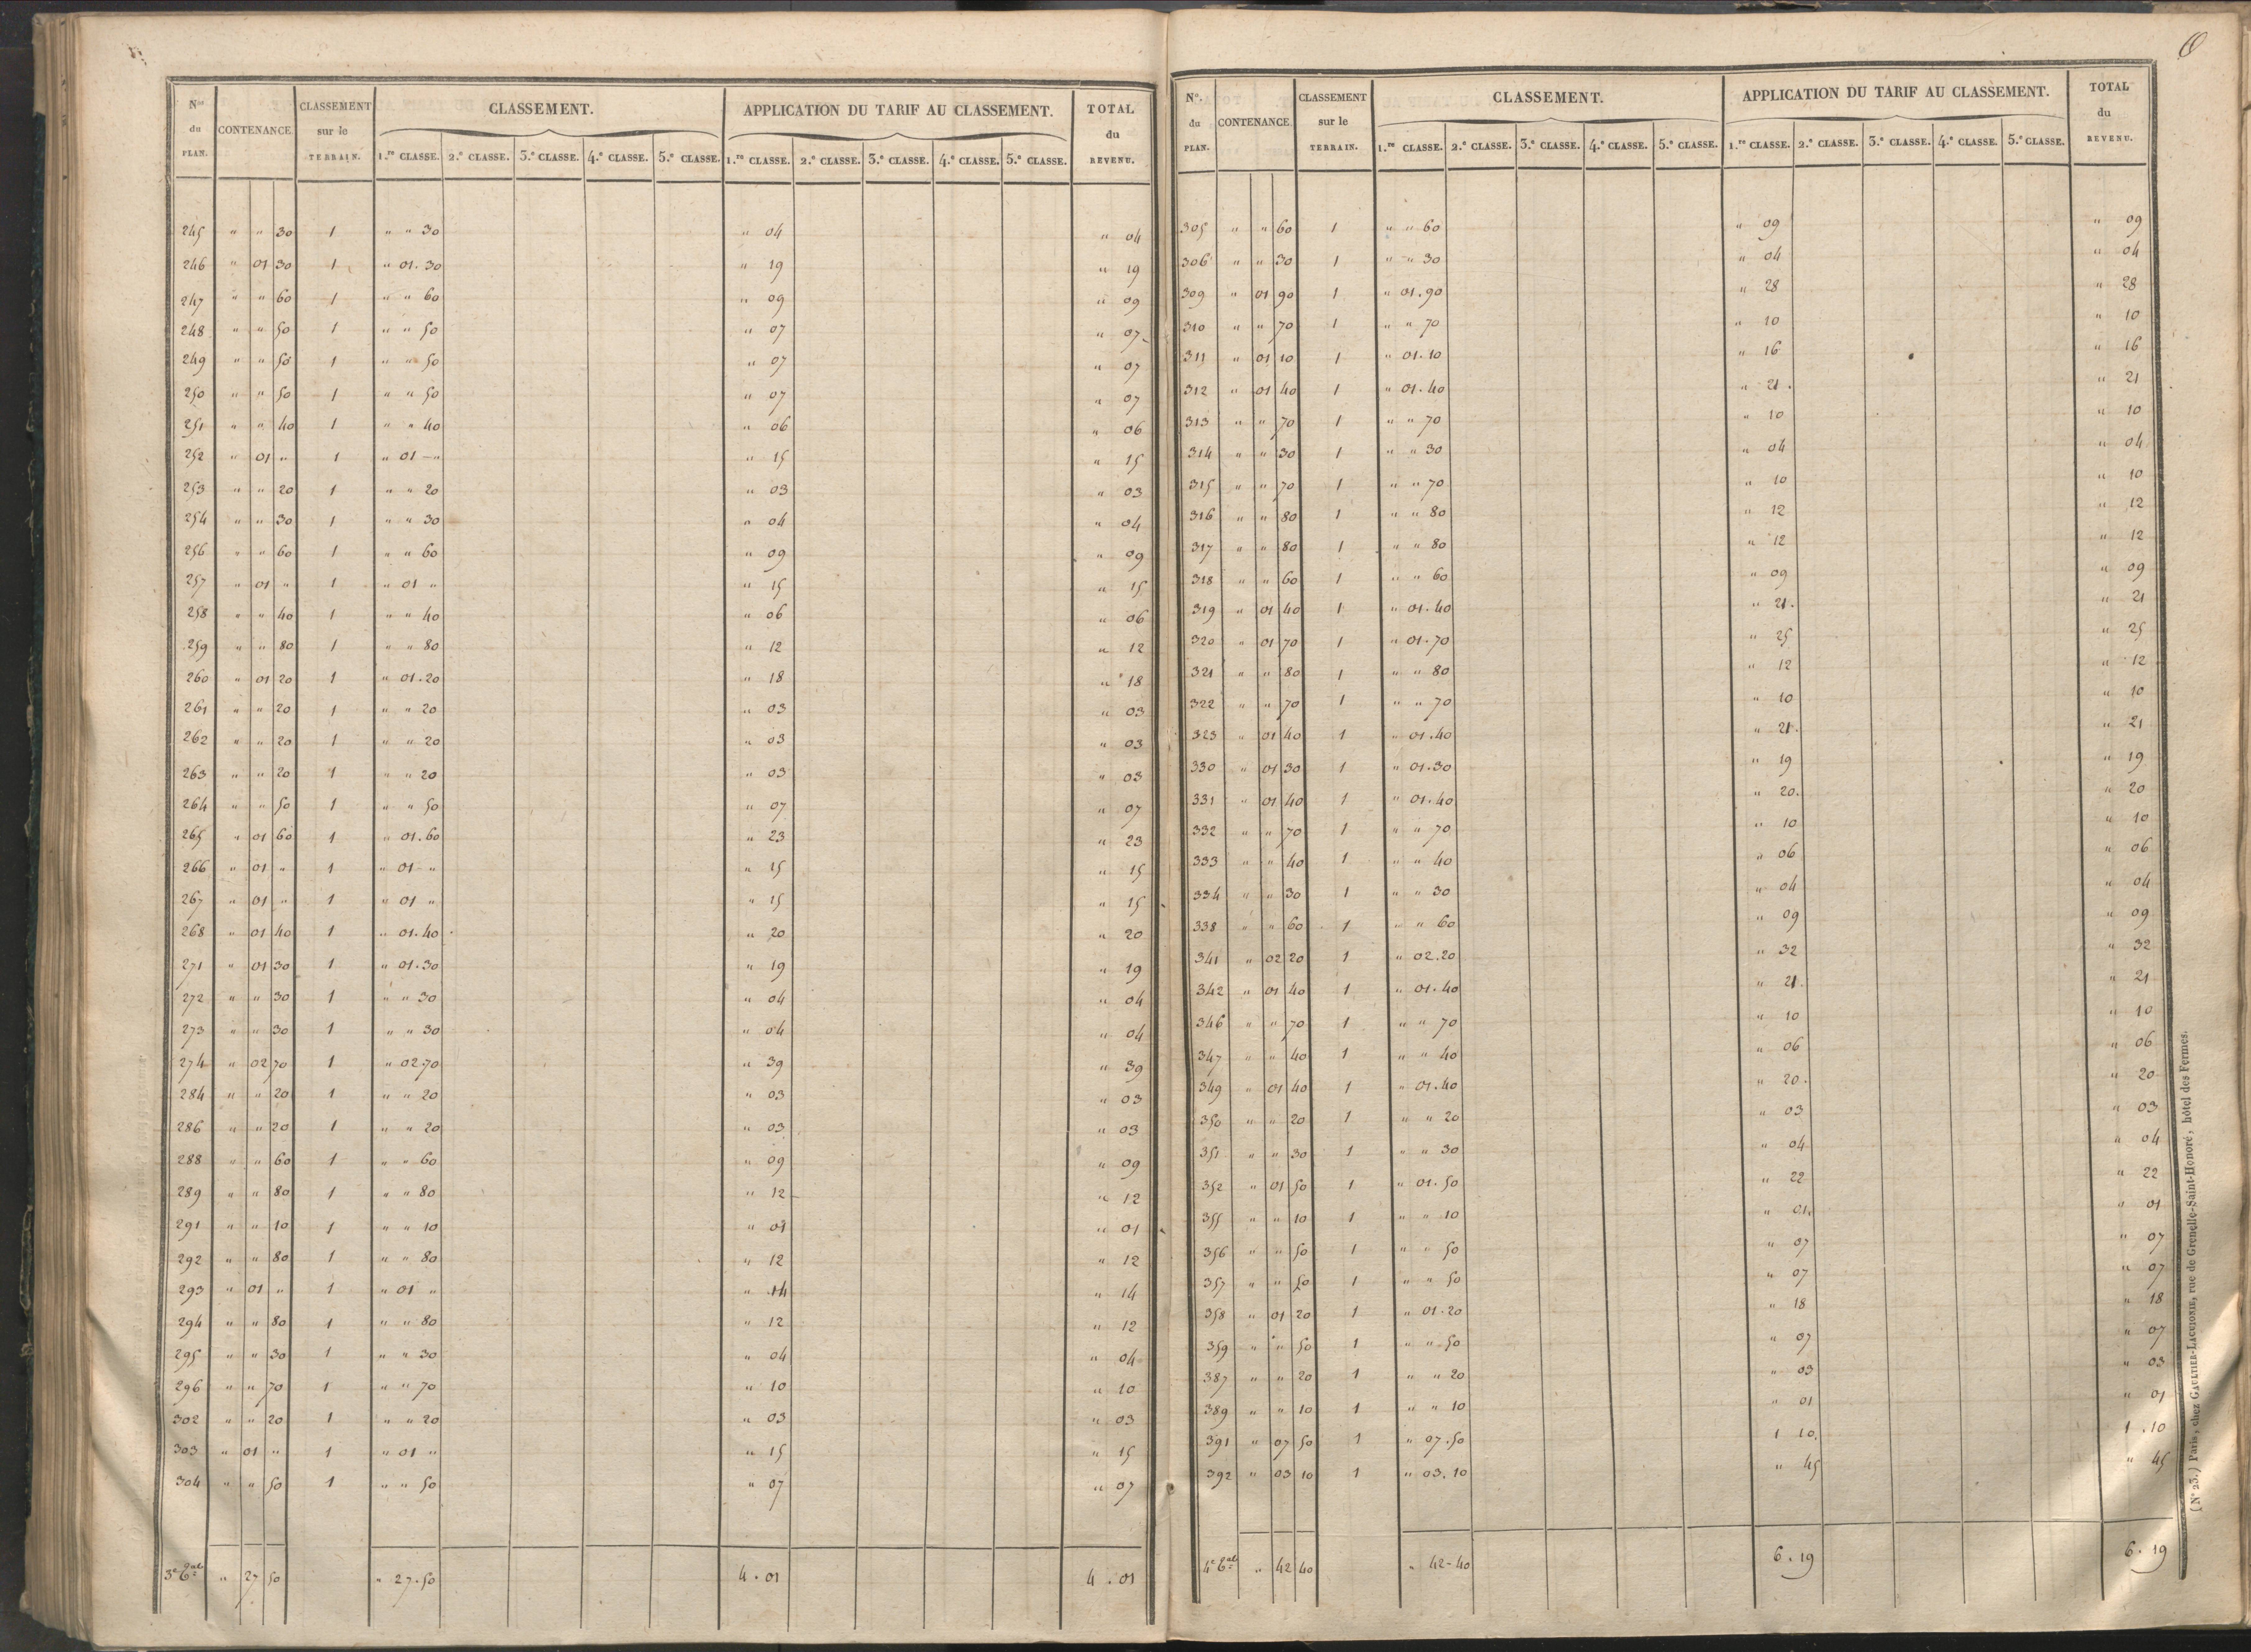 N.os du PLAN. CONTENANCE. CLASSEMENT sur le TERRAIN. CLASSEMENT. APPLICATION DU TARIF AU CLASSEMENT. TOTAL du REVENU.
1.re CLASSE. 2.e CLASSE. 3.e CLASSE. 4.e CLASSE. 5.e CLASSE. 1.re CLASSE. 2.e CLASSE. 3.e CLASSE. 4.e CLASSE. 5.e CLASSE.
245 " " 30 1 " " 30 " 04 " 04
246 " 01 30 1 " 01.30 " 19 " 19
247 " " 60 1 " " 60 " 09 " 09
248 " " 50 1 " " 50 " 07 " 07
249 " " 50 1 " " 50 " 07 " 07
250 " " 50 1 " " 50 " 07 " 07
251 " " 40 1 " " 40 " 06 " 06
252 " 01 " 1 " 01 - " " 15 " 15
253 " " 20 1 " " 20 " 03 " 03
254 " " 30 1 " " 30 " 04 " 04
256 " " 60 1 " " 60 " 09 " 09
257 " 01 " 1 " 01 " " 15 " 15
258 " " 40 1 " " 40 " 06 " 06
259 " " 80 1 " " 80 " 12 " 12
260 " 01 20 1 " 01.20 " 18 " 18
261 " " 20 1 " " 20 " 03 " 03
262 " " 20 1 " " 20 " 03 " 03
263 " " 20 1 " " 20 " 03 " 03
264 " " 50 1 " " 50 " 07 " 07
265 " 01 60 1 " 01.60 " 23 " 23
266 " 01 " 1 " 01 - " " 15 " 15
267 " 01 " 1 " 01 " " 15 " 15
268 " 01 40 1 " 01.40 " 20 " 20
271 " 01 30 1 " 01.30 " 19 " 19
272 " " 30 1 " " 30 " 04 " 04
273 " " 30 1 " " 30 " 04 " 04
274 " 02 70 1 " 02.70 " 39 " 39
284 " " 20 1 " " 20 " 03 " 03
286 " " 20 1 " " 20 " 03 " 03
288 " " 60 1 " " 60 " 09 " 09
289 " " 80 1 " " 80 " 12 " 12
291 " " 10 1 " " 10 " 01 " 01
292 " " 80 1 " " 80 " 12 " 12
293 " 01 " 1 " 01 " " 14 " 14
294 " " 80 1 " " 80 " 12 " 12
295 " " 30 1 " " 30 " 04 " 04
296 " " 70 1 " " 70 " 10 " 10
302 " " 20 1 " " 20 " 03 " 03
303 " 01 " 1 " 01 " " 15 " 15
304 " " 50 1 " " 50 " 07 " 07
3e tal " 27 50 " 27.50 4.01 4.01
N.os du PLAN. CONTENANCE. CLASSEMENT sur le TERRAIN. CLASSEMENT. APPLICATION DU TARIF AU CLASSEMENT. TOTAL du REVENU.
1.re CLASSE. 2.e CLASSE. 3.e CLASSE. 4.e CLASSE. 5.e CLASSE. 1.re CLASSE. 2.e CLASSE. 3.e CLASSE. 4.e CLASSE. 5.e CLASSE.
305 " " 60 1 " " 60 " 09 " 09
306 " " 30 1 " " 30 " 04 " 04
309 " 01 90 1 " 01.90 " 28 " 28
310 " " 70 1 " " 70 " 10 " 10
311 " 01 10 1 " 01.10 " 16 " 16
312 " 01 40 1 " 01.40 " 21. " 21
313 " " 70 1 " " 70 " 10 " 10
314 " " 30 1 " " 30 " 04 " 04
315 " " 70 1 " " 70 " 10 " 10
316 " " 80 1 " " 80 " 12 " 12
317 " " 80 1 " " 80 " 12 " 12
318 " " 60 1 " " 60 " 09 " 09
319 " 01 40 1 " 01.40 " 21. " 21
320 " 01 70 1 " 01.70 " 25 " 25
321 " " 80 1 " " 80 " 12 " 12
322 " " 70 1 " " 70 " 10 " 10
323 " 01 40 1 " 01.40 " 21. " 21
330 " 01 30 1 " 01.30 " 19 " 19
331 " 01 40 1 " 01.40 " 20. " 20
332 " " 70 1 " " 70 " 10 " 10
333 " " 40 1 " " 40 " 06 " 06
334 " " 30 1 " " 30 " 04 " 04
338 " " 60 1 " " 60 " 09 " 09
341 " 02 20 1 " 02.20 " 32 " 32
342 " 01 40 1 " 01.40 " 21. " 21
346 " " 70 1 " " 70 " 10 " 10
347 " " 40 1 " " 40 " 06 " 06
349 " 01 40 1 " 01.40 " 20. " 20
350 " " 20 1 " " 20 " 03 " 03
351 " " 30 1 " " 30 " 04 " 04
352 " 01 50 1 " 01.50 " 22 " 22
355 " " 10 1 " " 10 " 01. " 01
356 " " 50 1 " " 50 " 07 " 07
357 " " 50 1 " " 50 " 07 " 07
358 " 01 20 1 " 01.20 " 18 " 18
359 " " 50 1 " " 50 " 07 " 07
387 " " 20 1 " " 20 " 03 " 03
389 " " 10 1 " " 10 " 01 " 01
391 " 07 50 1 " 07.50 1 10. 1.10
392 " 03 10 1 " 03.10 " 45 " 45
4e tal " 42 40 " 42-40 6.19 6.19
(N° 23.) Paris, chez GAULTIER-LAGUIONIE, rue de Grenelle-Saint-Honoré, hôtel des Fermes.